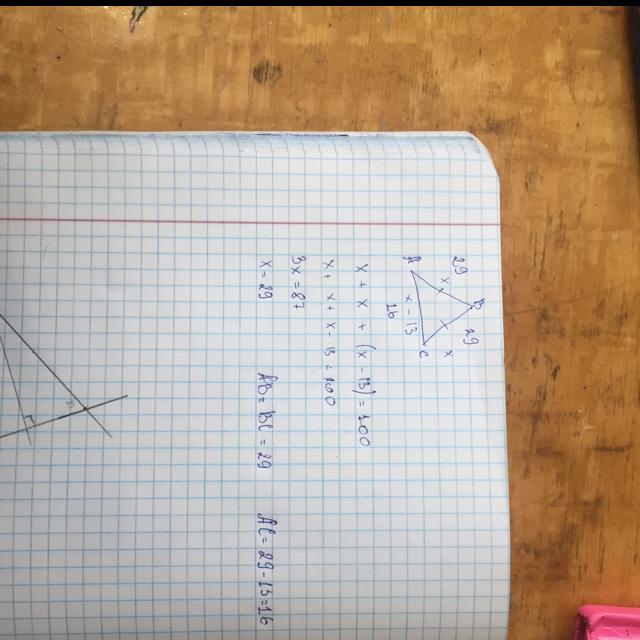 B
29 x x 29 x
A x - 13 C
16
x + x + (x - 13) = 100
x + x + x - 13 = 100
3x = 87
x = 29 AB = BC = 29 AC = 29 - 13 = 16